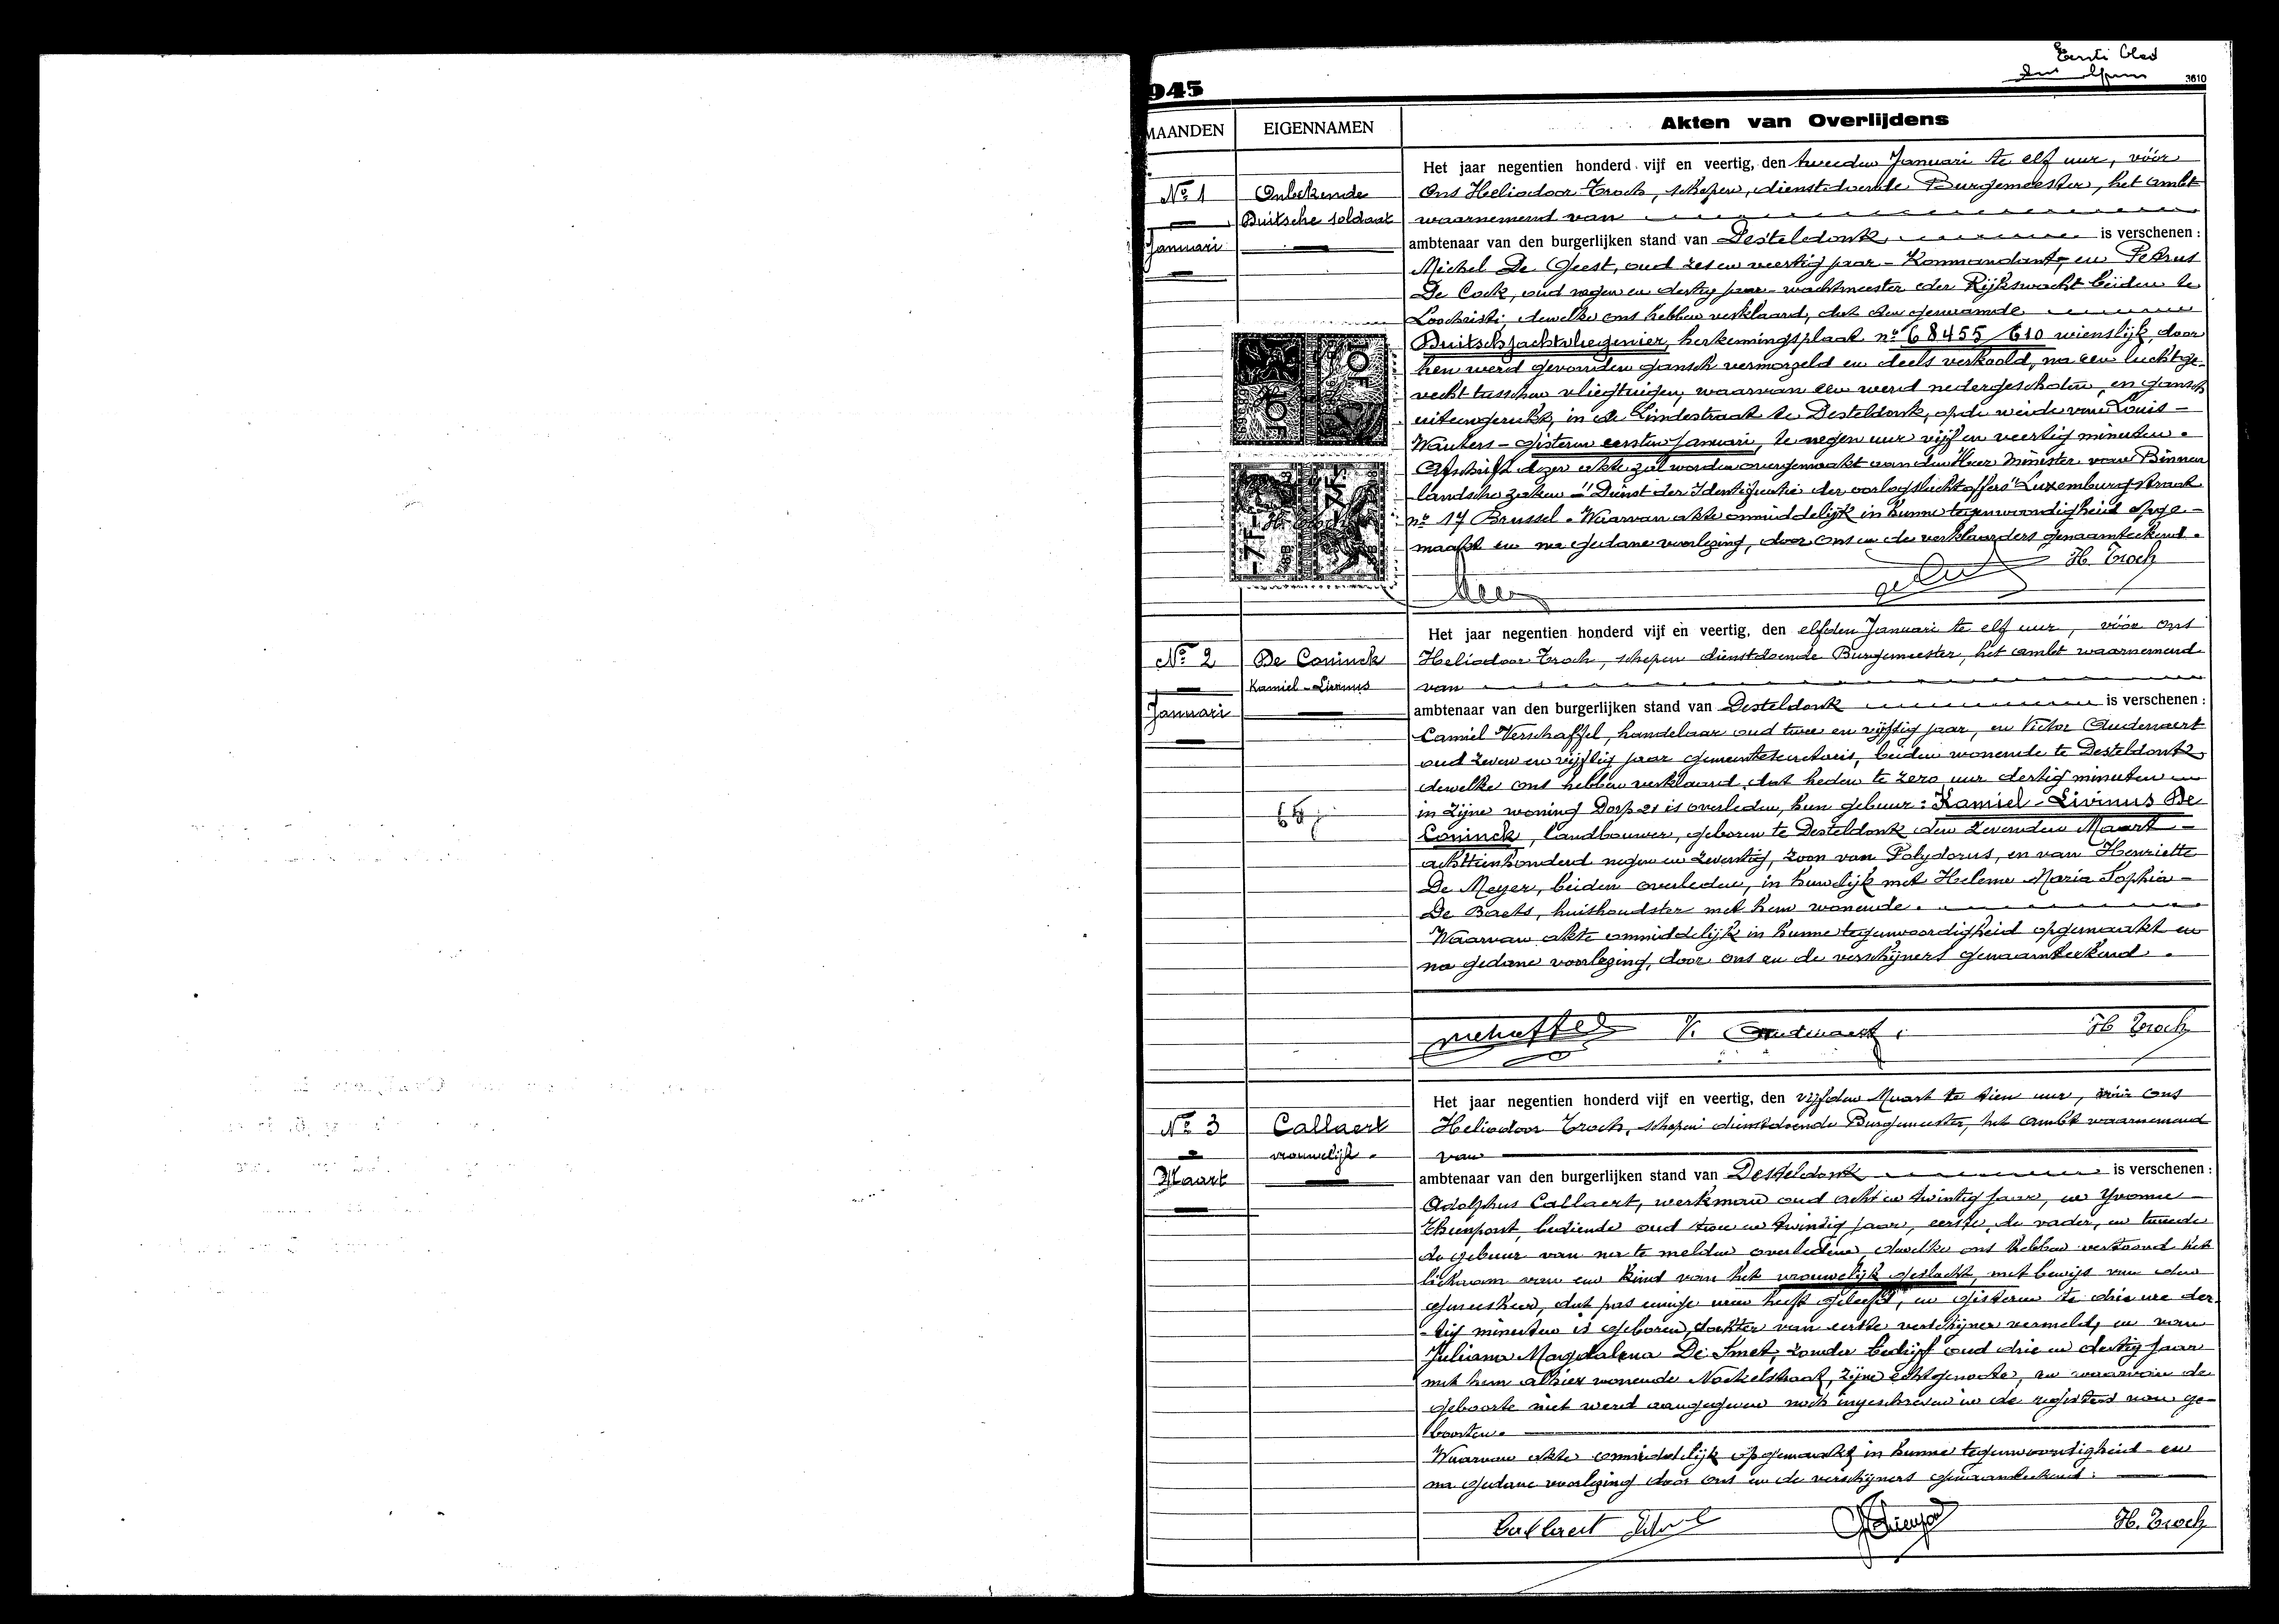 Eerste blad
3610
945
MAANDEN
EIGENNAMEN
Akten van Overlijdens
Het jaar negentien honderd vijf en veertig, den tweeden Januari te elf uur, vóór
No 1
Onbekende
Ons Heliodoor Troch, schepen, dienstdoende Burgemeester, het ambt
Duitsche soldaat
waarnemend van
Januari
ambtenaar van den burgerlijken stand van Desteldonk is verschenen :
Michel De Geest, oud zes en veertig jaar - Kommandant, en Petrus
De Cock, oud negen en dertig jaar - wachtmeester der Rijkswacht beiden te
Loochristi, dewelke ons hebben verklaard, dat den genaamde
Duitsch jachtvliegenier, herkenningsplaat no 68455/610 wienslijk, door
hen werd gevonden gansch vermorzeld en deels verkoold, na een luchtge-
vecht tusschen vliegtuigen, waarvan een werd nedergeschoten, en gansch
uiteengerukt, in de Lindestraat te Desteldonk, op de weide van Louis -
Wauters - gisteren eersten Januari, te negen uur vijf en veertig minuten.
Afschrift dezer akte zal worden overgemaakt aan den Heer Minister van Binnen
landsche zaken - "Dienst der Identificatie der oorlogslachtoffers" Luxemburgstraat
no 17 Brussel. Waarvan akte onmiddelijk in hunne tegenwoordigheid opge-
maakt en na gedane voorlezing, door ons en de verklaarders genaamteekend.
H. Troch
Het jaar negentien honderd vijf en veertig, den elfden Januari te elf uur, vóór ons
No 2
De Coninck
Heliodoor Troch, schepen dienstdoende Burgemeester, het ambt waarnemend
Kamiel - Livinus
van
Januari
ambtenaar van den burgerlijken stand van Desteldonk is verschenen :
Camiel Verschaffel, handelaar oud twee en vijftig jaar, en Victor Oudenaert
oud zeven en vijftig jaar gemeentesecretaris, beiden wonende te Desteldonk,
dewelke ons hebben verklaard, dat heden te zero uur dertig minuten
in zijne woning Dorp 21 is overleden, hun gebuur : Kamiel - Livinus De
65j
Coninck, landbouwer, geboren te Desteldonk den zevenden Maart -
achttienhonderd negen en zeventig, zoon van Polydorus, en van Henriette
De Meyer, beiden overleden, in huwelijk met Helena Maria Sophia -
De Baets, huishoudster met hem wonende.
Waarvan akte onmiddelijk in hunne tegenwoordigheid opgemaakt en
na gedane voorlezing, door ons en de verschijners genaamteekend.
V. Oudenaert.
H Troch
Het jaar negentien honderd vijf en veertig, den vijfden Maart te tien uur, vóór ons
No 3
Callaert
Heliodoor Troch, schepen dienstdoende Burgemeester, het ambt waarnemend
vrouwelijk.
van
Maart
ambtenaar van den burgerlijken stand van Desteldonk is verschenen :
Adolphus Callaert, werkman oud acht en twintig jaar, en Yvonne -
Thienpont, bediende oud twee en twintig jaar, eerste, de vader, en tweede
de gebuur van na te melden overledene, dewelke ons hebben vertoond het
lichaam van een kind van het vrouwelijk geslacht, met bewijs van den
geneesheer, dat pas eenige uren heeft geleefd, en gisteren te drie ure der-
tig minuten is geboren, dochter van eerste verschijner vermeld, en van
Juliana Magdalena De Smet, zonder bedrijf oud drie en dertig jaar
met hem alhier wonende Noekelstraat, zijne echtgenoote, en waarvan de
geboorte niet werd aangegeven noch ingeschreven in de registers van ge-
boorten.
Waarvan akte onmiddelijk opgemaakt in hunne tegenwoordigheid - en
na gedane voorlezing door ons en de verschijners genaamteekend.
Callaert
H. Troch